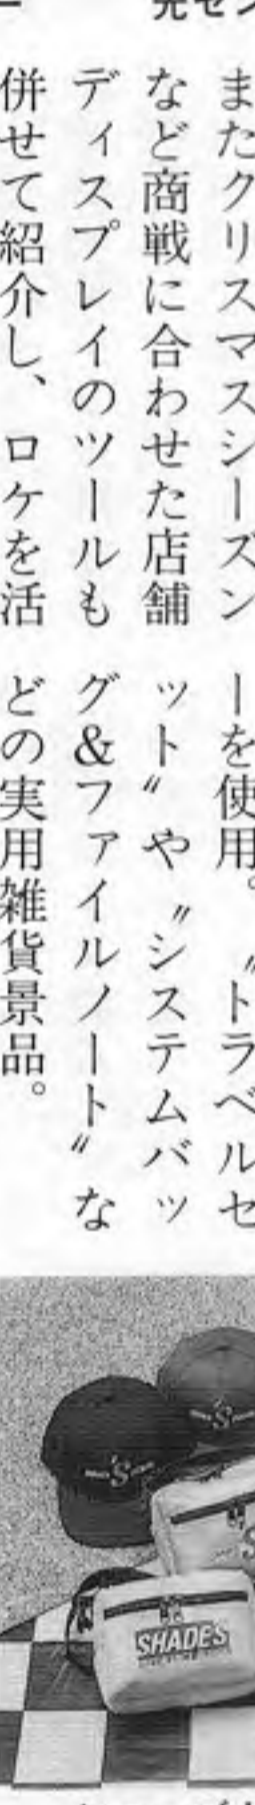 またクリスマスシーズン
など商戦に合わせた店舗
ディスプレイのツールも
併せて紹介し、ロケを活
ーを使用。〝トラベルセ
ット〟や〝システムバッ
グ&ファイルノート〟な
どの実用雑貨景品。
S
S
SHADES